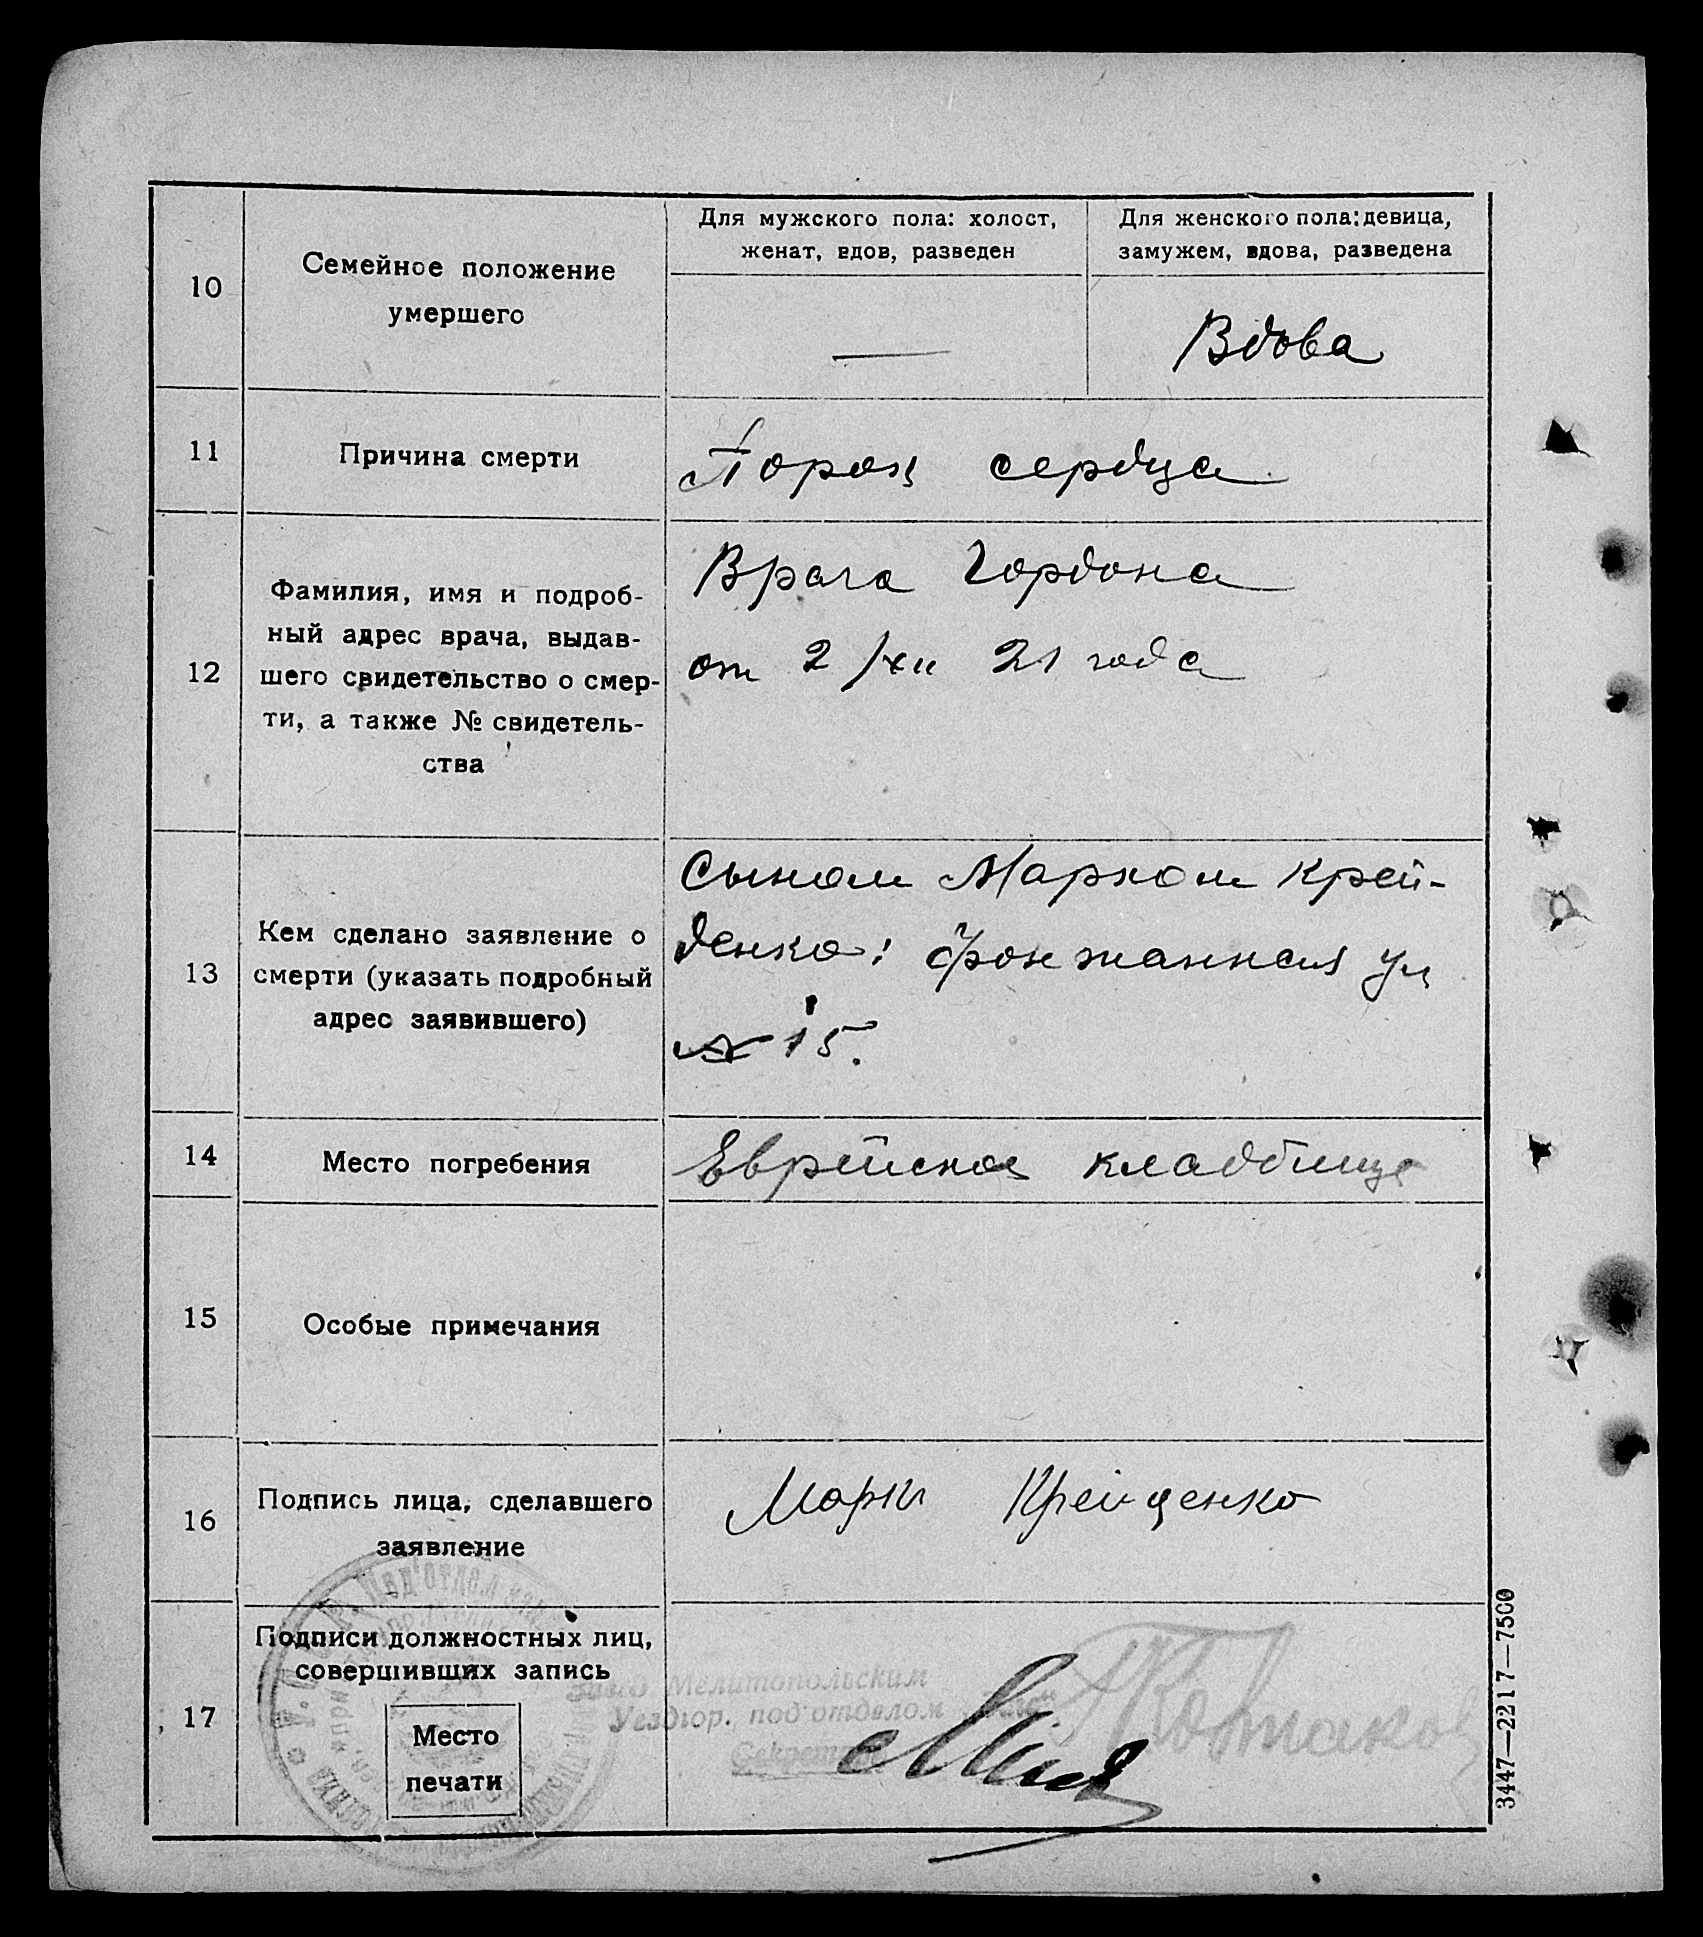 Для мужского пола: холост,
женат, вдов, разведен
Для женского пола: девица,
замужем, вдова, разведена
10
Семейное положение
умершего
—
Вдова
11
Причина смерти
Порок сердца
12
Фамилия, имя и подроб-
ный адрес врача, выдав-
шего свидетельство о смер-
ти, а также № свидетель-
ства
Врача Гордона
от 2/XII 21 года
13
Кем сделано заявление о
смерти (указать подробный
адрес заявившего)
Сыном Марком Крей-
денко: Фонтанная ул
№ 15.
14
Место погребения
Еврейское кладбище
15
Особые примечания
16
Подпись лица, сделавшего
заявление
Марк Крейденко
17
Подписи должностных лиц,
совершивших запись
Место
печати
Мелитопольским
Уездгор. подотделом
Секретарь
3447—2217—7500